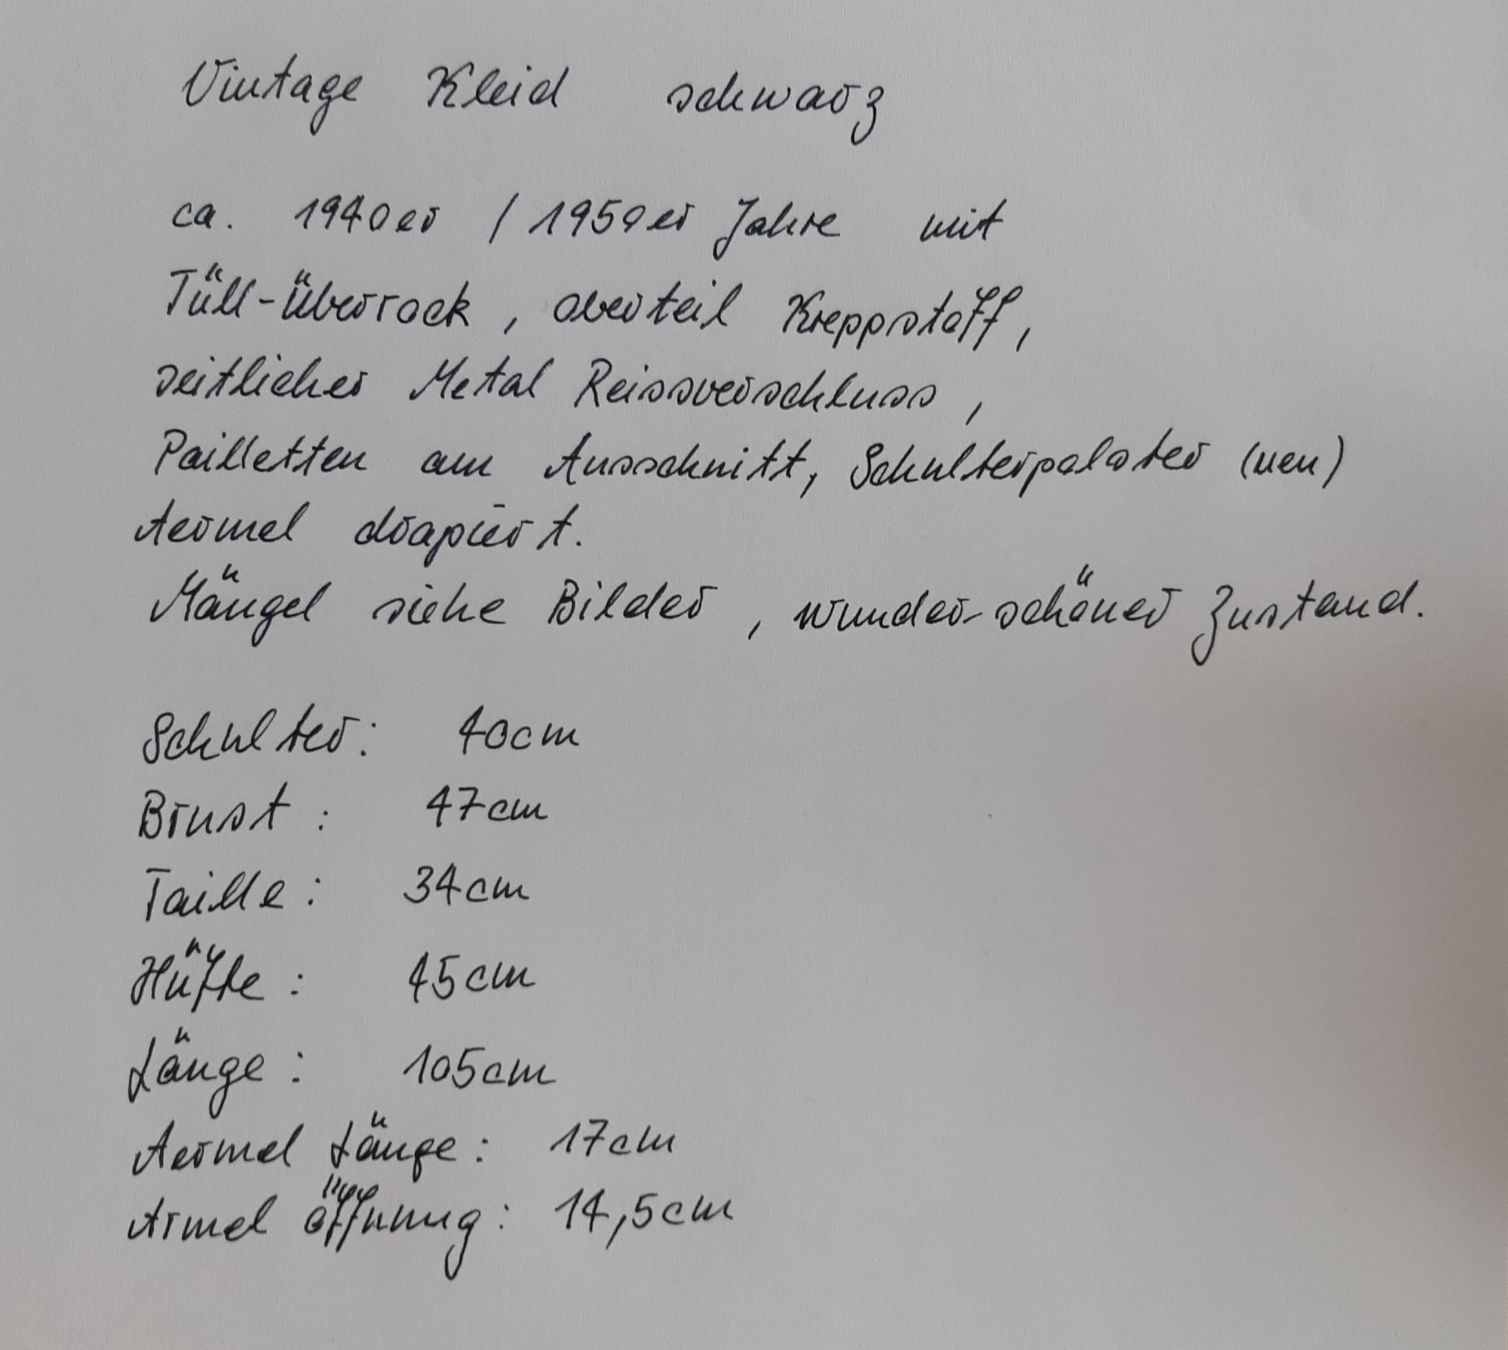 Vintage Kleid schwarz
ca. 1940er / 1950er Jahre mit
Tüll-Überrock, oberteil Kreppstoff,
seitlicher Metal Reissverschluss,
Pailletten am Ausschnitt, Schulterpolster (neu)
Aermel drapiert.
Mängel siehe Bilder, wunder-schöner Zustand.
Schulter: 40cm
Brust: 47cm
Taille: 34cm
Hüfte: 45cm
Länge: 105cm
Aermel Länge: 17cm
Armel öffnung: 14,5cm